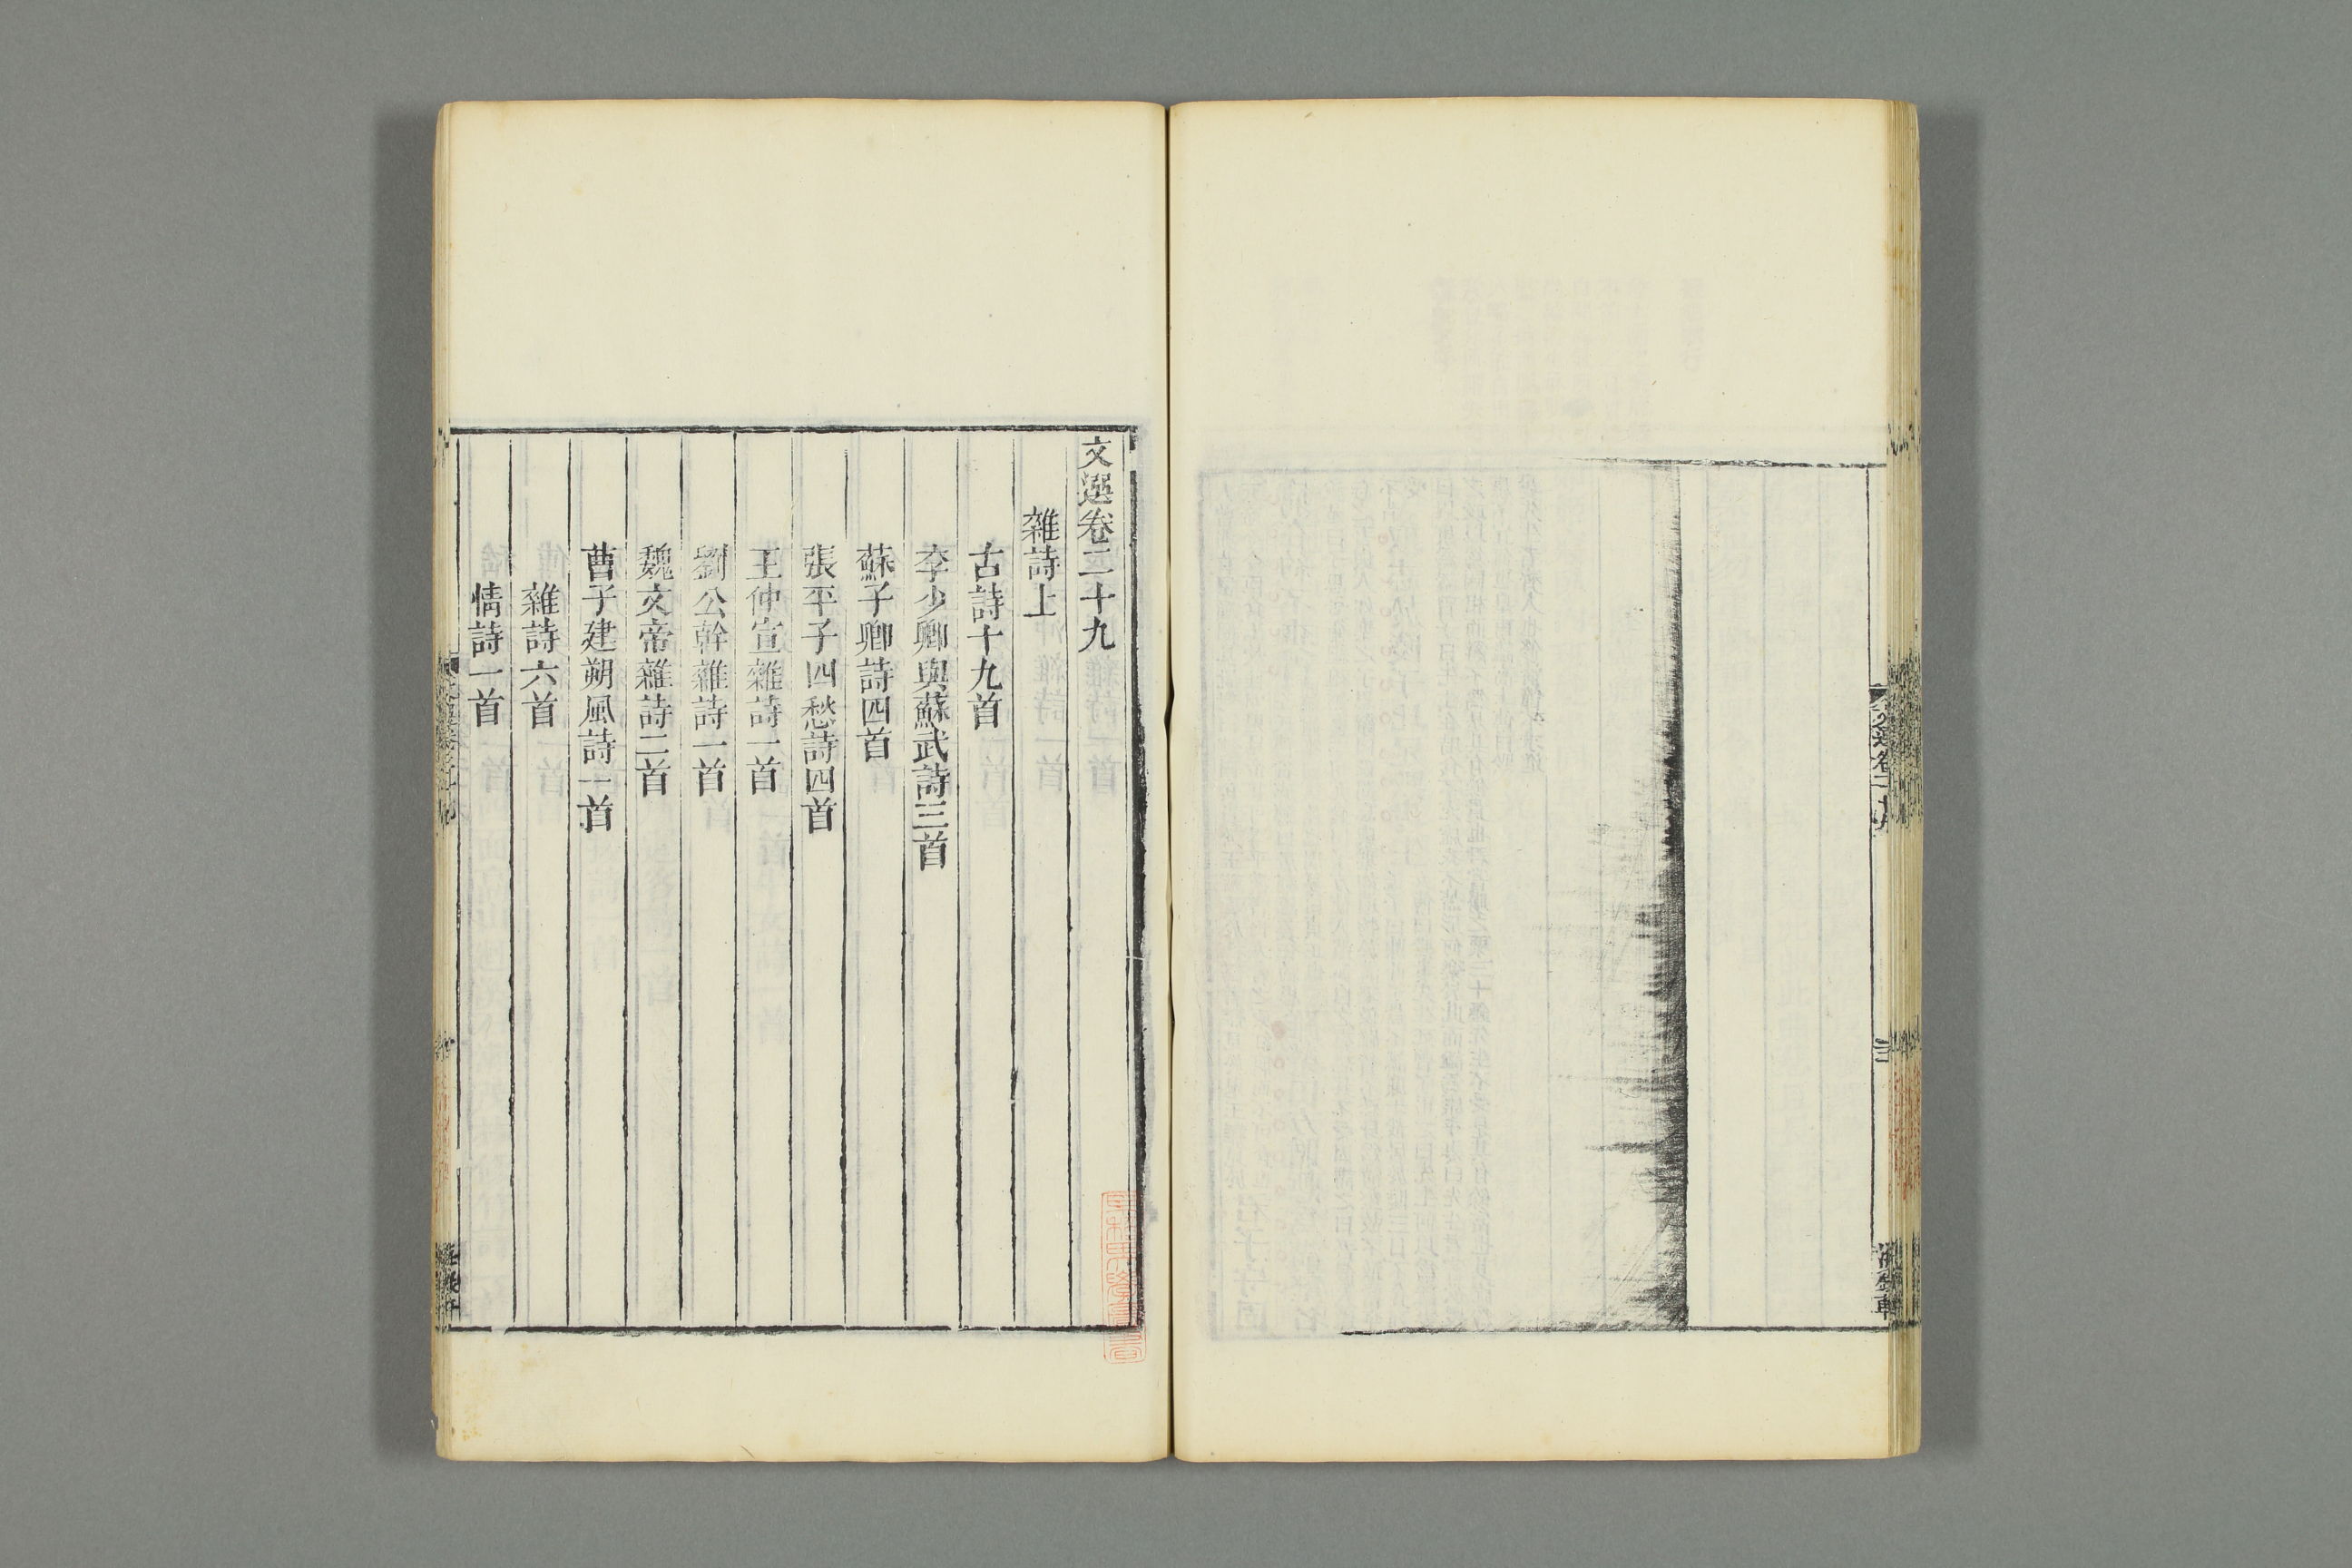 文選卷二十九
雜詩上
古詩十九首
李少卿與蘇武詩三首
蘇子卿詩四首
張平子四愁詩四首
王仲宣雜詩一首
劉公幹雜詩一首
魏文帝雜詩二首
曹子建朔風詩一首
雜詩六首
情詩一首